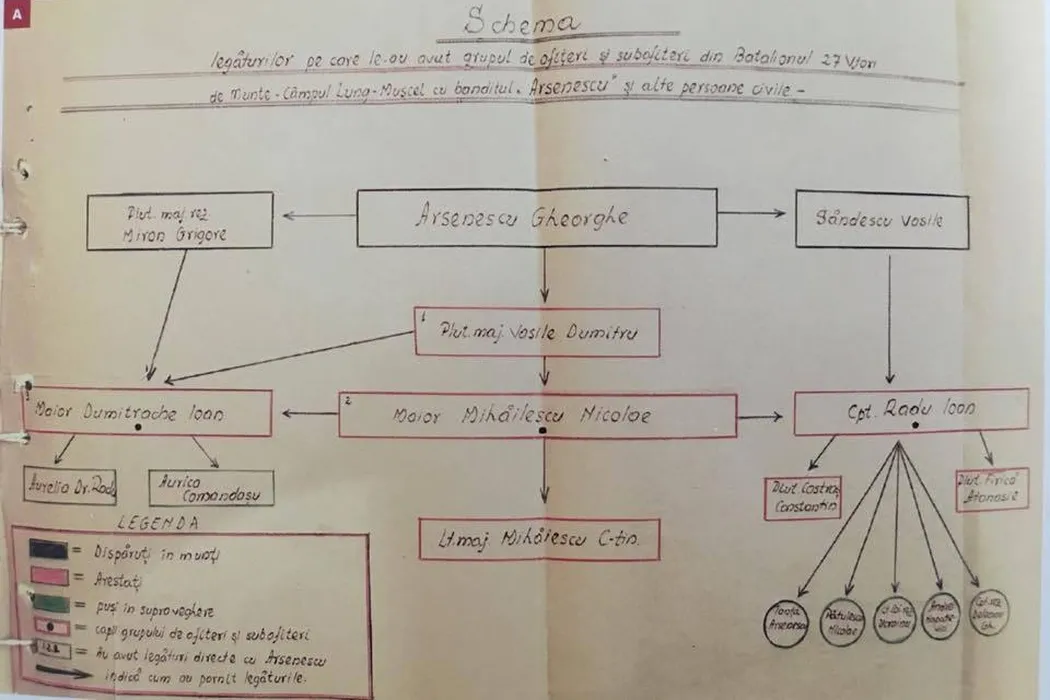 A
Schema
legăturilor pe care le-au avut grupul de ofițeri și subofițeri din Batalionul 27 Vîon
de Munte - Câmpul Lung-Mușcel cu banditul „Arsenescu" și alte persoane civile -
Plut. maj. rez.
Miron Grigore
Arsenescu Gheorghe
Săndescu Vasile
1
Plut. maj. Vasile Dumitru
3
Maior Dumitrache Ioan
2
Maior Mihăilescu Nicolae
Cpt. Radu Ioan
Aurelia Dr. Radu
Aurica
Comandașu
Constantin
Plut. Firică
Atanasie
Lt. maj. Mihăiescu C-tin.
LEGENDA
= Dispăruți în munți
= Arestați
= puși în supraveghere
= capii grupului de ofițeri și subofițeri
1.2.3. = Au avut legături directe cu Arsenescu
indică cum au pornit legăturile.
Arsenescu
Nicolae